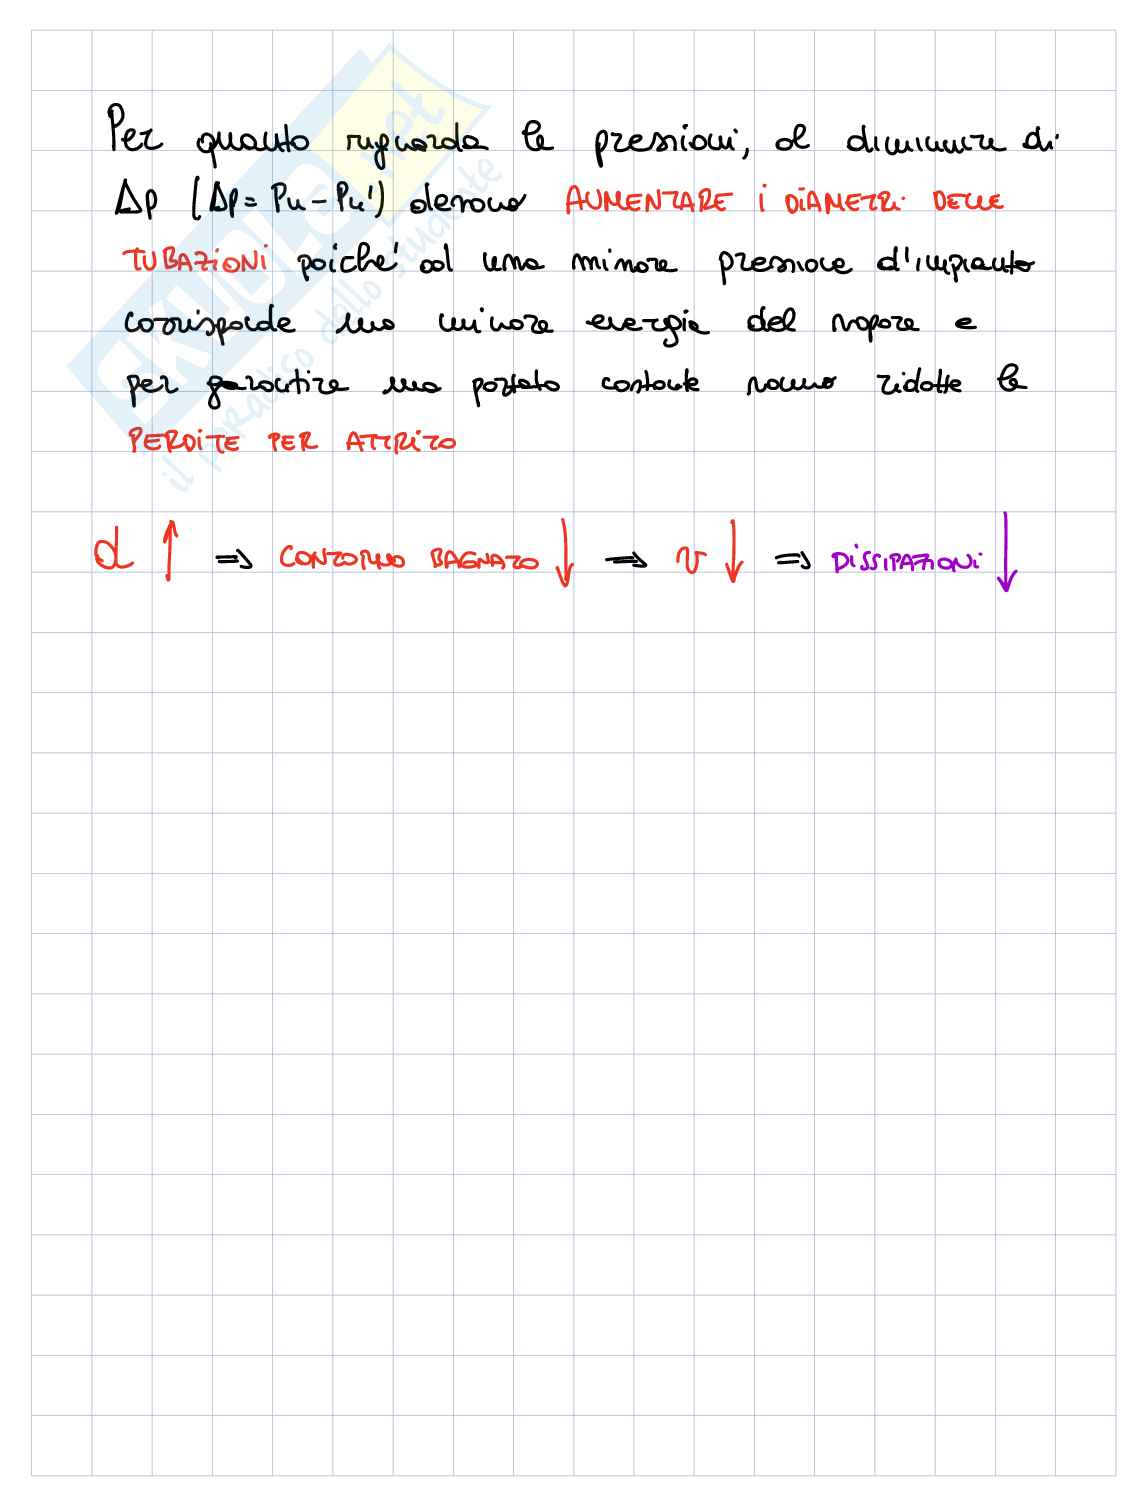 Per quanto riguarda le pressioni, al diminuire di
Δp (Δp = Pu - Pu') devono AUMENTARE i DIAMETRI DELLE
TUBAZIONI poiché ad una minore pressione d'impianto
corrisponde una minore energia del vapore e
per garantire una portata costante vanno ridotte le
PERDITE PER ATTRITO
d ↑ => CONTORNO BAGNATO ↓ => v ↓ => DISSIPAZIONI ↓
SKUOLA.net
il paradiso dello studente